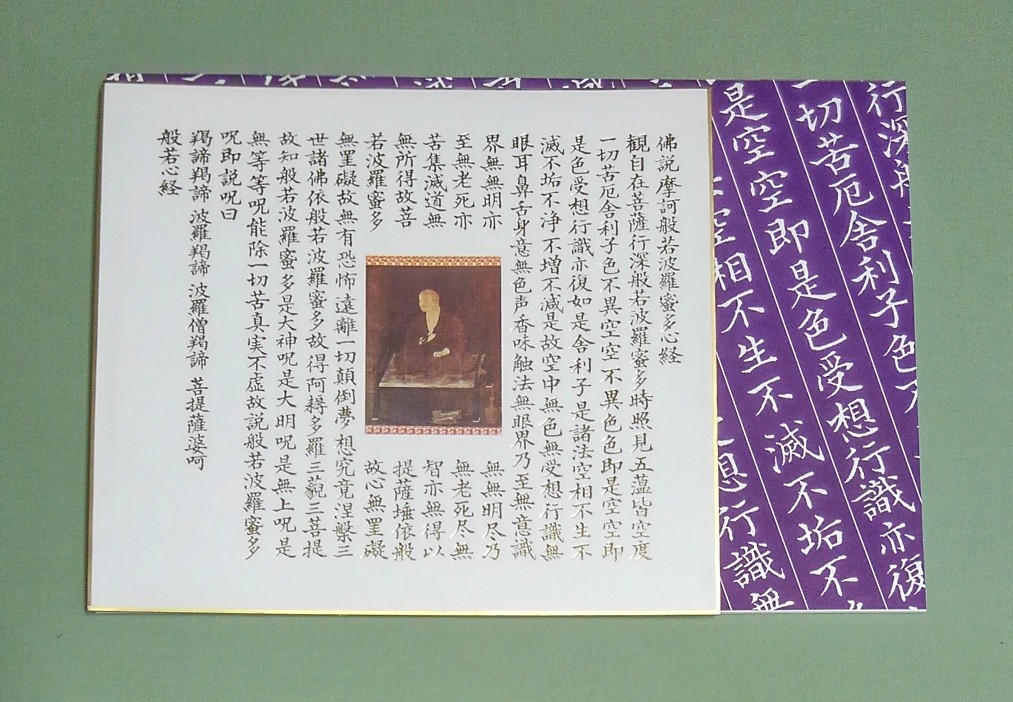 佛説摩訶般若波羅蜜多心経
観自在菩薩行深般若波羅蜜多時照見五蘊皆空度
一切苦厄舎利子色不異空空不異色色即是空空即
是色受想行識亦復如是舎利子是諸法空相不生不
滅不垢不浄不増不減是故空中無色無受想行識無
眼耳鼻舌身意無色声香味触法無眼界乃至無意識
界無無明亦無無明尽乃
至無老死亦無老死尽無
苦集滅道無智亦無得以
無所得故菩提薩埵依般
若波羅蜜多故心無罣礙
無罣礙故無有恐怖遠離一切顛倒夢想究竟涅槃三
世諸佛依般若波羅蜜多故得阿耨多羅三藐三菩提
故知般若波羅蜜多是大神呪是大明呪是無上呪是
無等等呪能除一切苦真実不虚故説般若波羅蜜多
呪即説呪曰
羯諦羯諦 波羅羯諦 波羅僧羯諦 菩提薩婆呵
般若心経
行深般
一切苦厄舎利子色不
是空空即是色受想行識亦復
空相不生不滅不垢不
想行識無